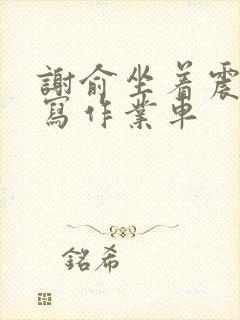 謝俞坐着震
寫作業車
銘希